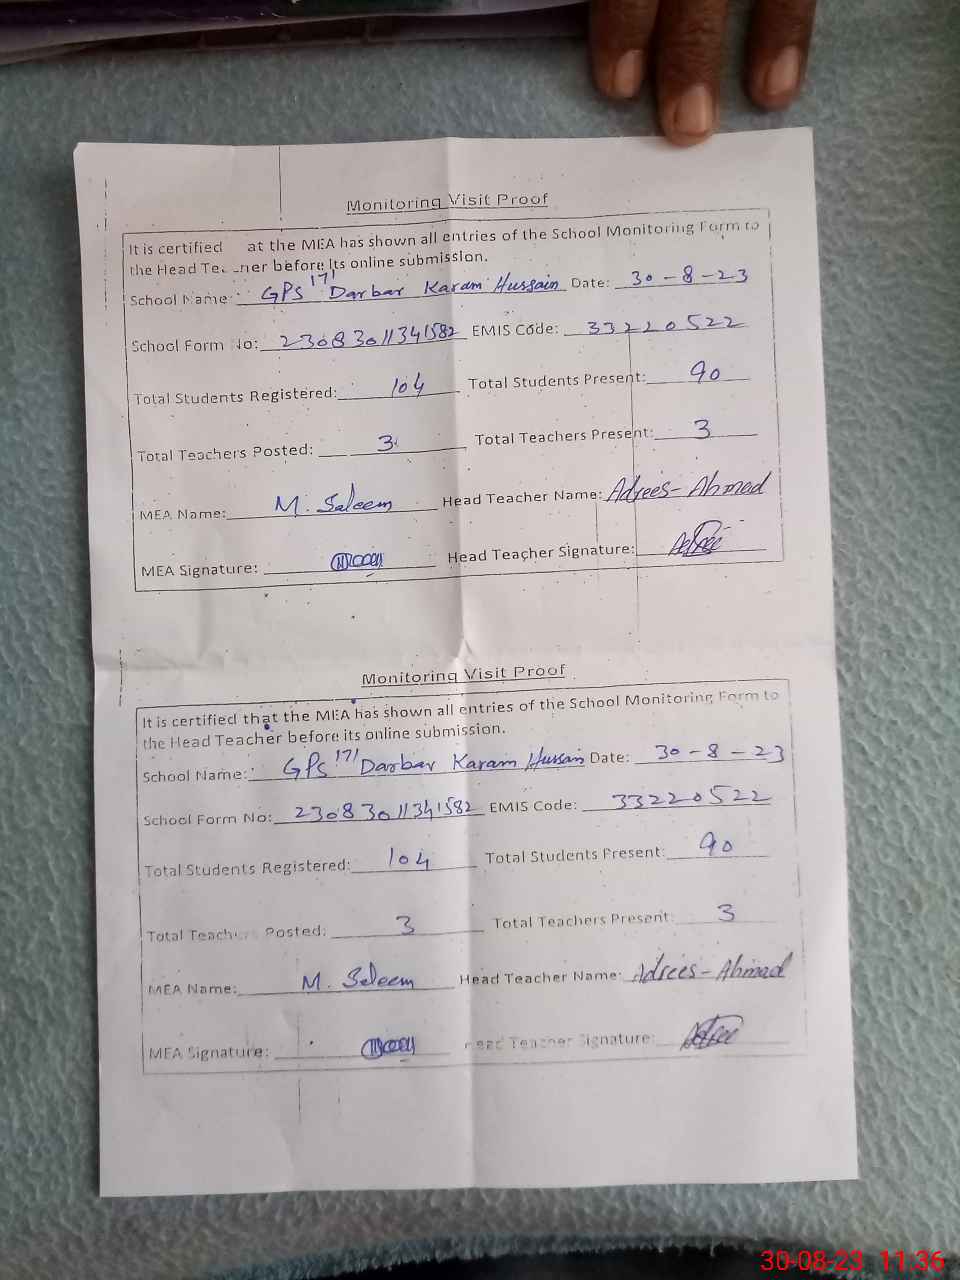 Monitoring Visit Proof
It is certified at the MEA has shown all entries of the School Monitoring Form to
the Head before its online submission.
School Name: GPS 171 Darbar Karam Hussain Date: 30-8-23
School Form No: 23083011341582 EMIS Code: 33220522
Total Students Registered: 104 Total Students Present: 90
Total Teachers Posted: 3 Total Teachers Present: 3
MEA Name: M. Saleem Head Teacher Name: Adrees-Ahmad
MEA Signature: Head Teacher Signature:
Monitoring Visit Proof
It is certified that the MEA has shown all entries of the School Monitoring Form to
the Head Teacher before its online submission.
School Name: GPS 171 Darbar Karam Hussain Date: 30-8-23
School Form No: 23083011341582 EMIS Code: 33220522
Total Students Registered: 104 Total Students Present: 90
Total Teachers Posted: 3 Total Teachers Present: 3
MEA Name: M. Saleem Head Teacher Name: Adrees-Ahmad
MEA Signature: Head Teacher Signature:
30-08-23 11:36